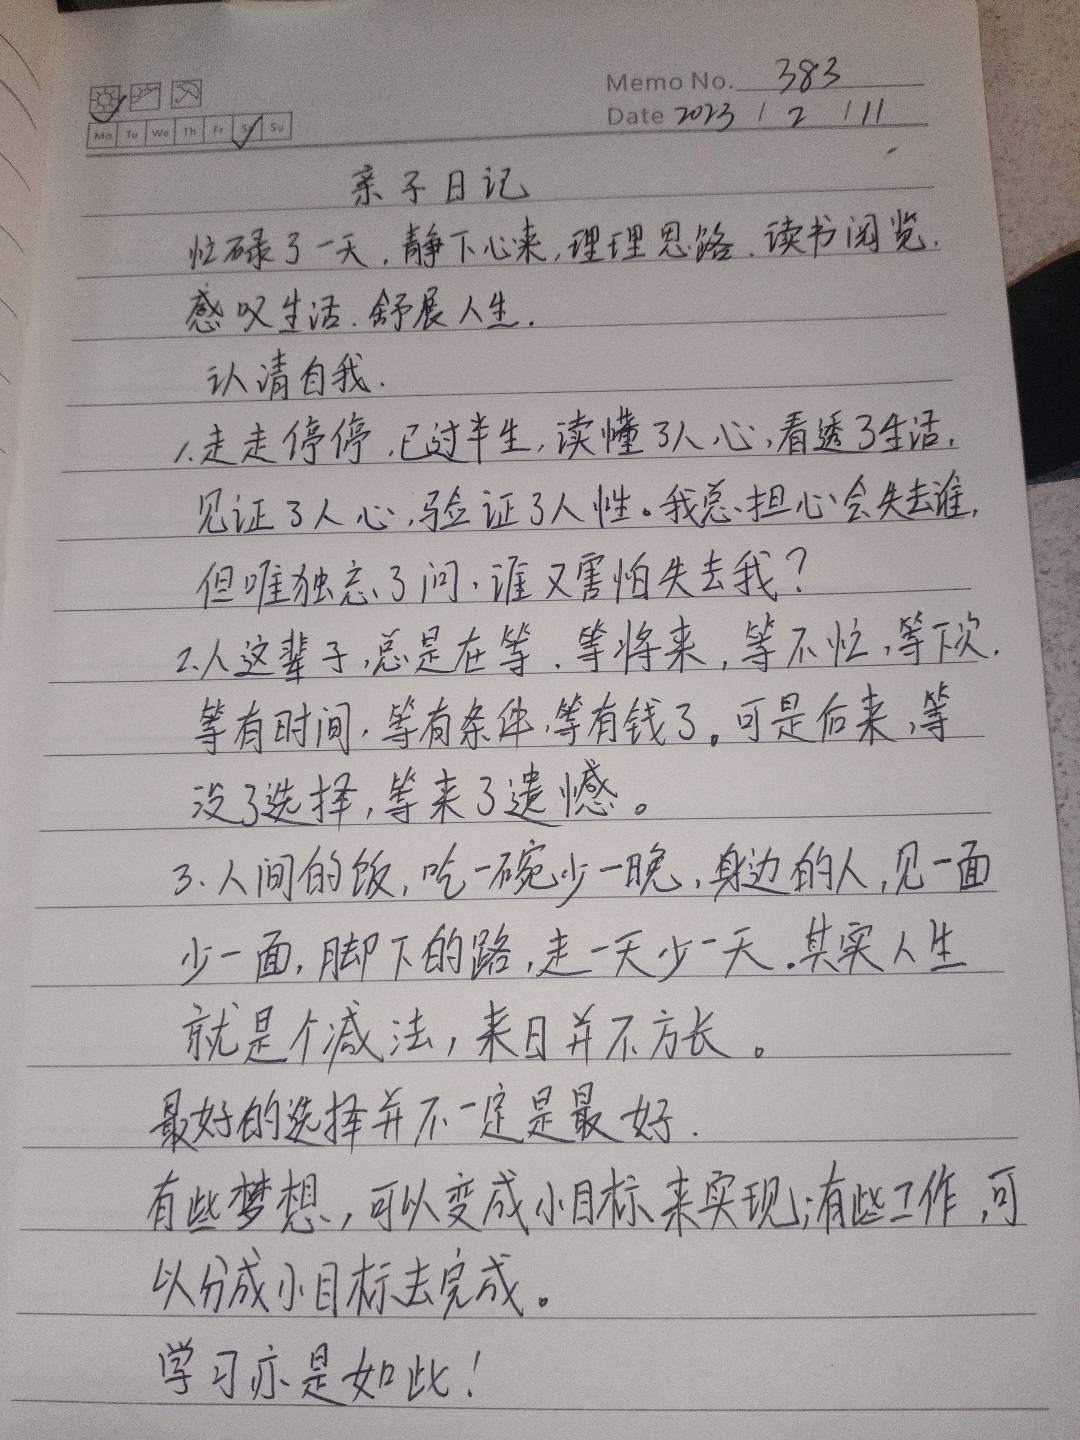 Memo No. 383
Mo Tu We Th Fr Sa Su
Date 2023 / 2 / 11
亲子日记
忙碌了一天,静下心来,理理思路.读书阅览.
感叹生活.舒展人生.
认清自我.
1.走走停停,已过半生,读懂了人心,看透了生活,
见证了人心,验证了人性。我总担心会失去谁,
但唯独忘了问,谁又害怕失去我?
2.人这辈子,总是在等.等将来,等不忙,等下次.
等有时间,等有条件,等有钱了。可是后来,等
没了选择,等来了遗憾。
3.人间的饭,吃一碗少一晚,身边的人,见一面
少一面,脚下的路,走一天少一天.其实人生
就是个减法,来日并不方长。
最好的选择并不一定是最好.
有些梦想,可以变成小目标来实现;有些工作,可
以分成小目标去完成。
学习亦是如此!